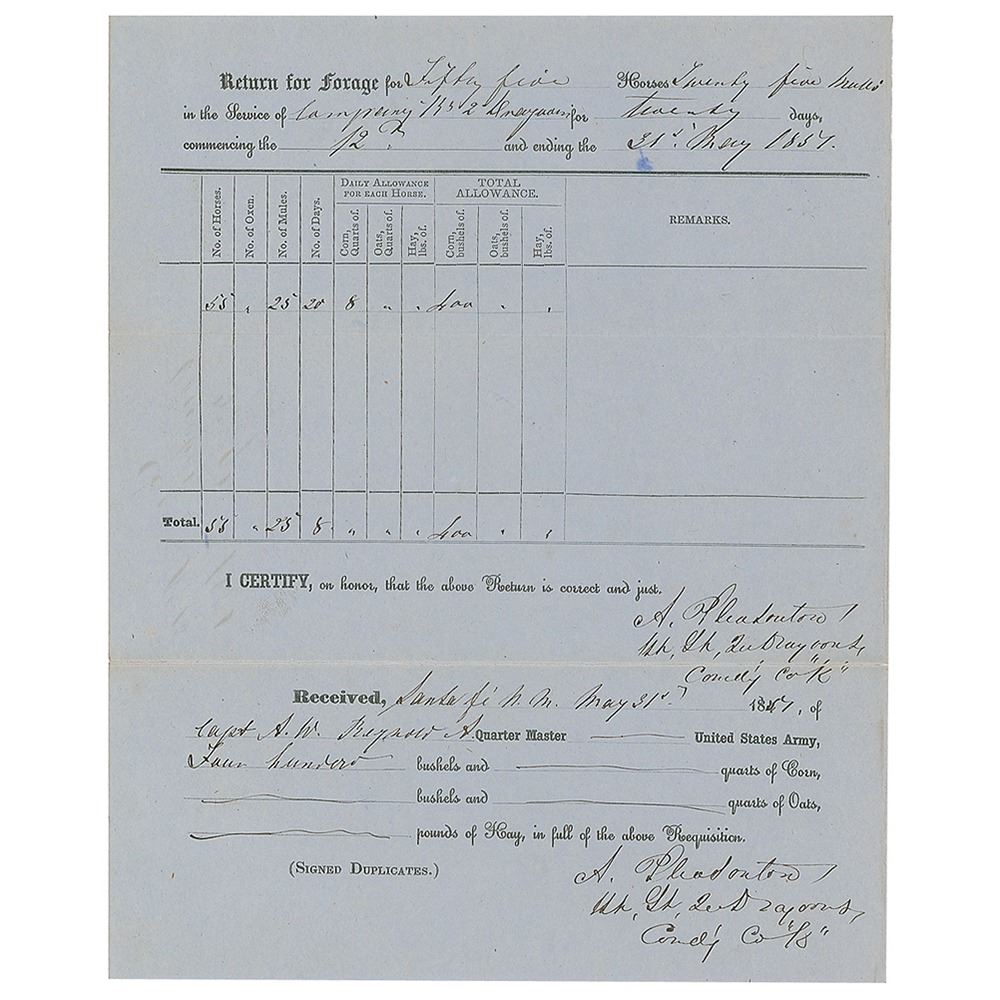 Return for Forage for Fifty five Horses Twenty five Mules
in the Service of Company "K" 2 Dragoons for twenty days,
commencing the 12th and ending the 31st. May 1857.
No. of Horses. No. of Oxen. No. of Mules. No. of Days. DAILY ALLOWANCE FOR EACH HORSE. TOTAL ALLOWANCE. REMARKS.
Corn, Quarts of. Oats, Quarts of. Hay, lbs. of. Corn, bushels of. Oats, bushels of. Hay, lbs. of.
55 " 25 20 8 " " 400 " "
Total. 55 " 25 8 " " " 400 " "
I CERTIFY, on honor, that the above Return is correct and just.
A. Pleasonton
2nd Dragoons,
Comd'g Co "K"
Received, Santa fé N. M. May 31st. 1857, of
Capt A. W. Reynolds A. Quarter Master United States Army,
Four hundred bushels and quarts of Corn,
bushels and quarts of Oats,
pounds of Hay, in full of the above Requisition.
(SIGNED DUPLICATES.)
A. Pleasonton
2nd Dragoons,
Comd'g Co "K"